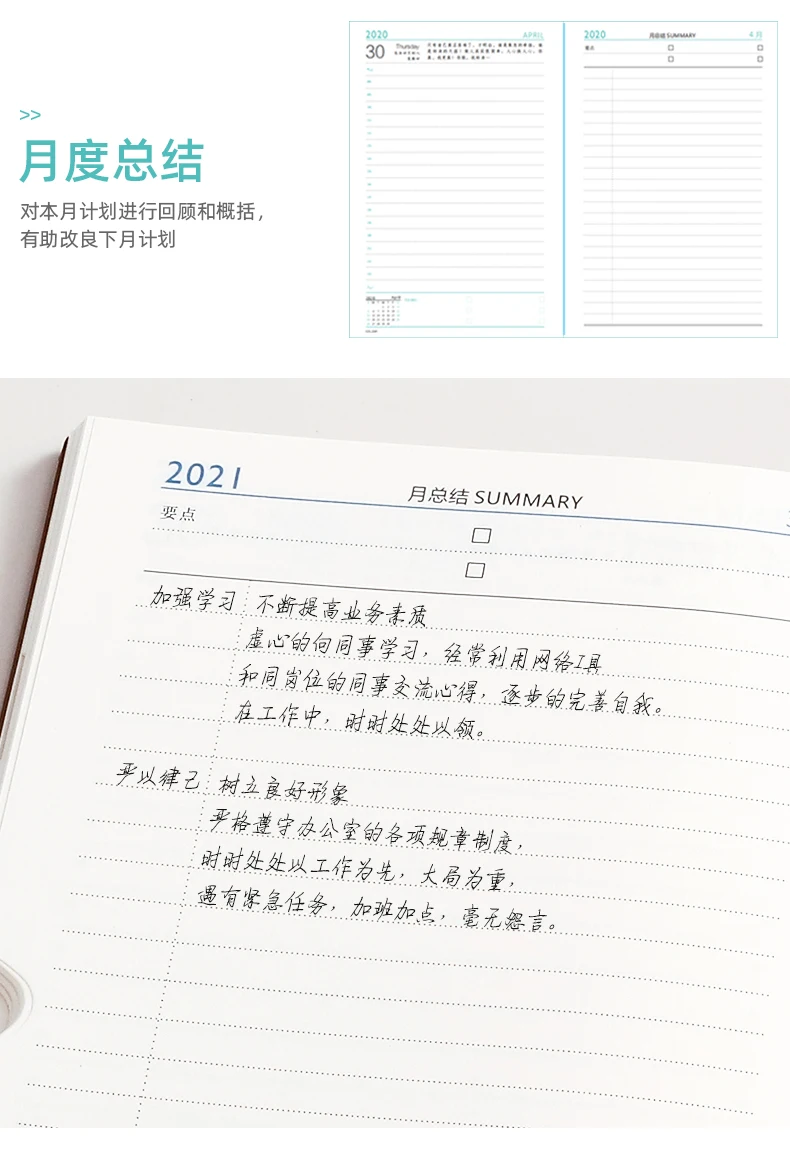 >>
月度总结
对本月计划进行回顾和概括，
有助改良下月计划
2020
APRIL
30
Thursday
2020
月总结 SUMMARY
4 月
要点
2021
月总结 SUMMARY
要点
加强学习 不断提高业务素质
虚心的向同事学习，经常利用网络工具
和同岗位的同事交流心得，逐步的完善自我。
在工作中，时时处处以领。
严以律己 树立良好形象
严格遵守办公室的各项规章制度，
时时处处以工作为先，大局为重，
遇有紧急任务，加班加点，毫无怨言。